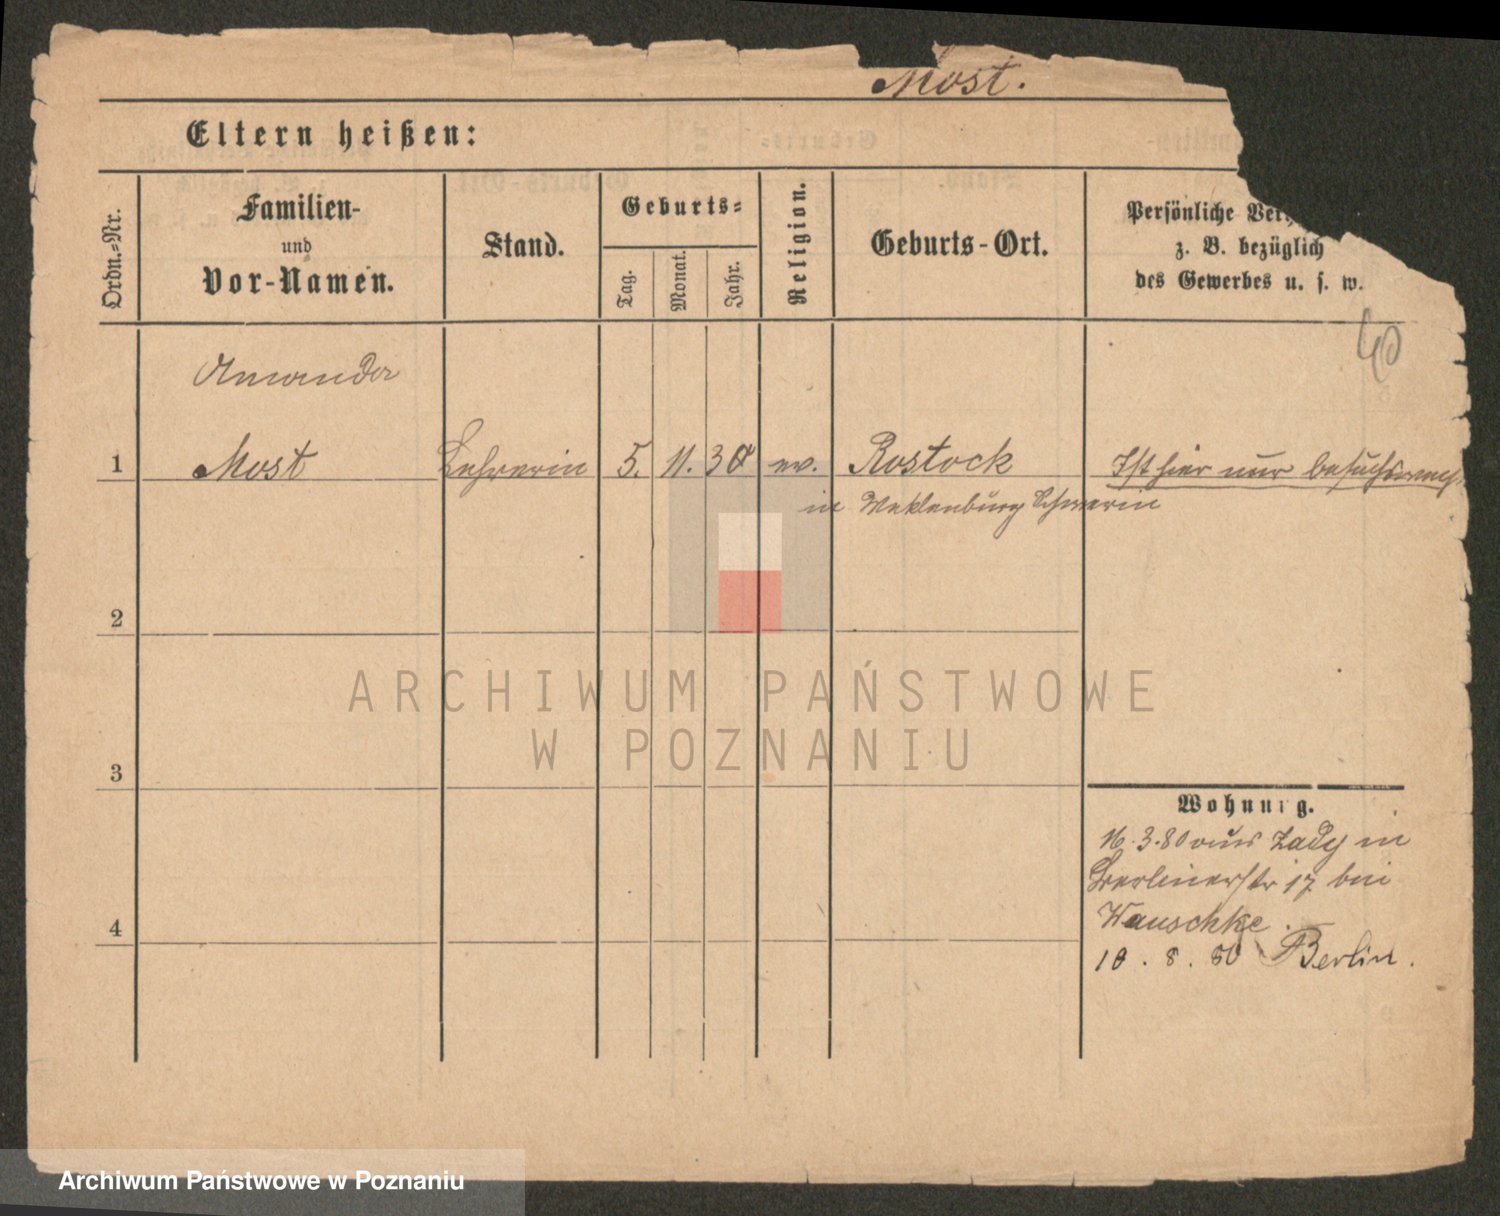 Most.
Eltern heißen:
Ordn.-Nr.
Familien-
und
Vor-Namen.
Stand.
Geburts-
Tag.
Monat.
Jahr.
Religion.
Geburts-Ort.
Persönliche
z. B. bezüglich
des Gewerbes u. s. w.
1
Most
Lehrerin
5.
11.
30
ev.
Rostock
Ist hier nur besuchsweise
in Meklenburg Schwerin
2
ARCHIWUM PAŃSTWOWE
W POZNANIU
3
Wohnung.
16.3.80 aus in
Berlinerstr 17 bei
Wauschke.
4
10.8.80 Berlin.
Archiwum Państwowe w Poznaniu